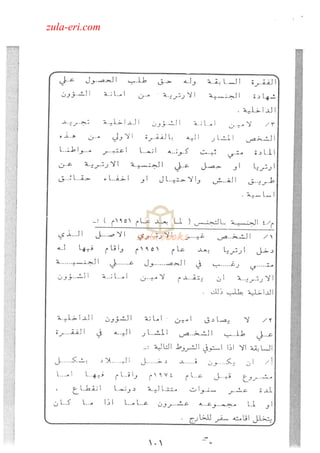 zula-eri.com
الفقرة السابقة وله حق طلب الحصول على
شهادة الجنسية الارترية من امانة الشؤون
الداخلية .
٣/ لامين امانة الشؤون الداخلية تجريد
الشخص المشار اليه بالفقرة الاولي من هذه
المادة متي ثبت كونه انما اعتبر مواطنا
ارتريا او حصل علي الجنسية الارترية عن
طريق الغش والاحتيال او اخفاء حقائق
اساسية .
م/٤ الجنسية بالتجنس ( لما بعد عام ١٩٥١م ) :-
١/ الشخص غير الارتري الاصل الذي
دخل ارتريا بعد عام ١٩٥١م واقام فيها له
متي رغب في الحصول علي الجنسية
الارترية ان يتقدم لامين امانة الشؤون
الداخلية بطلب ذلك .
٢/ لا يصادق امين امانة الشؤون الداخلية
علي طلب الشخص المشار اليه في الفقرة
السابقة الا اذا استوفي الشروط التالية :-
أ/ ان يكون قد دخل البلاد بشكل
مشروع قبل عام ١٩٧٤م واقام فيها اما
لمدة عشر سنوات متتالية دونما انقطاع ،
او لما مجموعه عشرون عاما اذا ما كان
يتخلل اقامته سفر للخارج .
١٠١